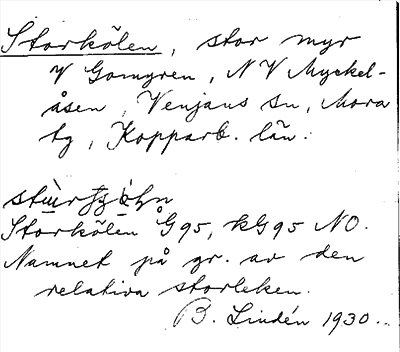 Storkölen, stor myr
V Gomyren, NV Myckel-
åsen, Venjans sn, Mora
tg, Kopparb. län.
Storkölen Å G95, kG95 NO.
Namnet på gr. av den
relativa storleken.
B. Lindén 1930.